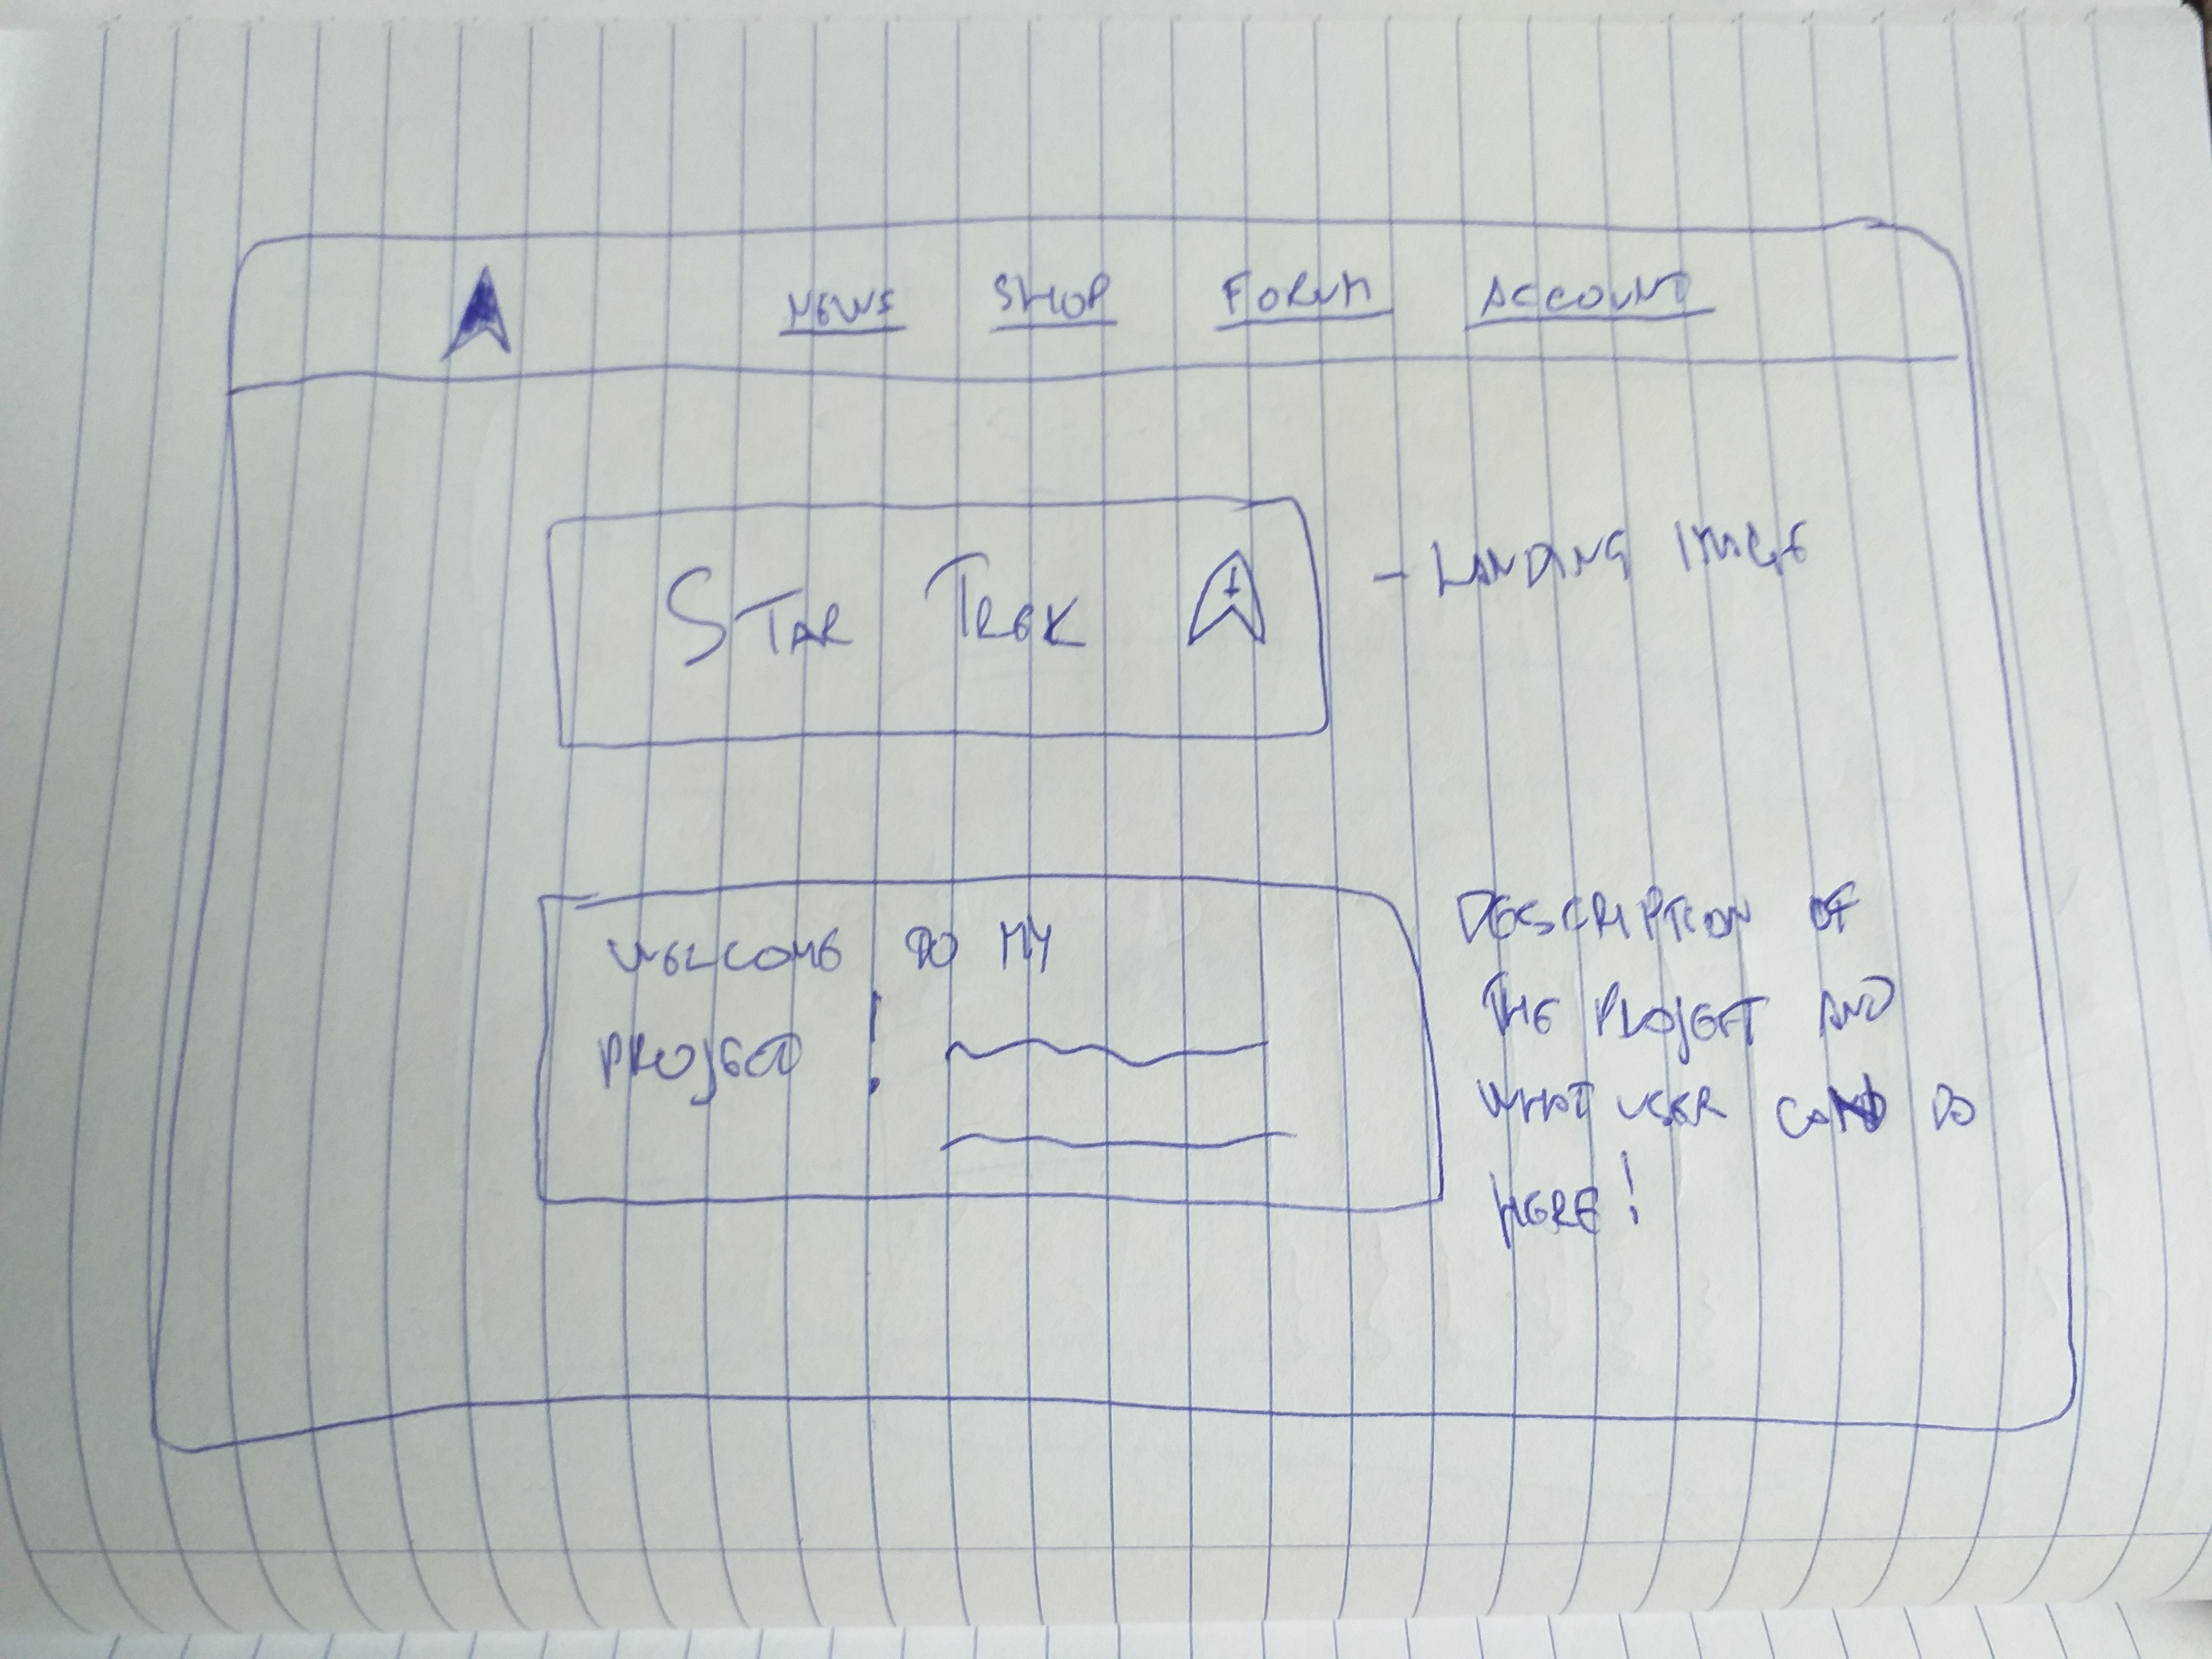 NEWS SHOP FORUM ACCOUNT
STAR TREK
- LANDING IMAGE
WELCOME TO MY
PROJECT !
DESCRIPTION OF
THE PROJECT AND
WHAT USER CAN DO
HERE!